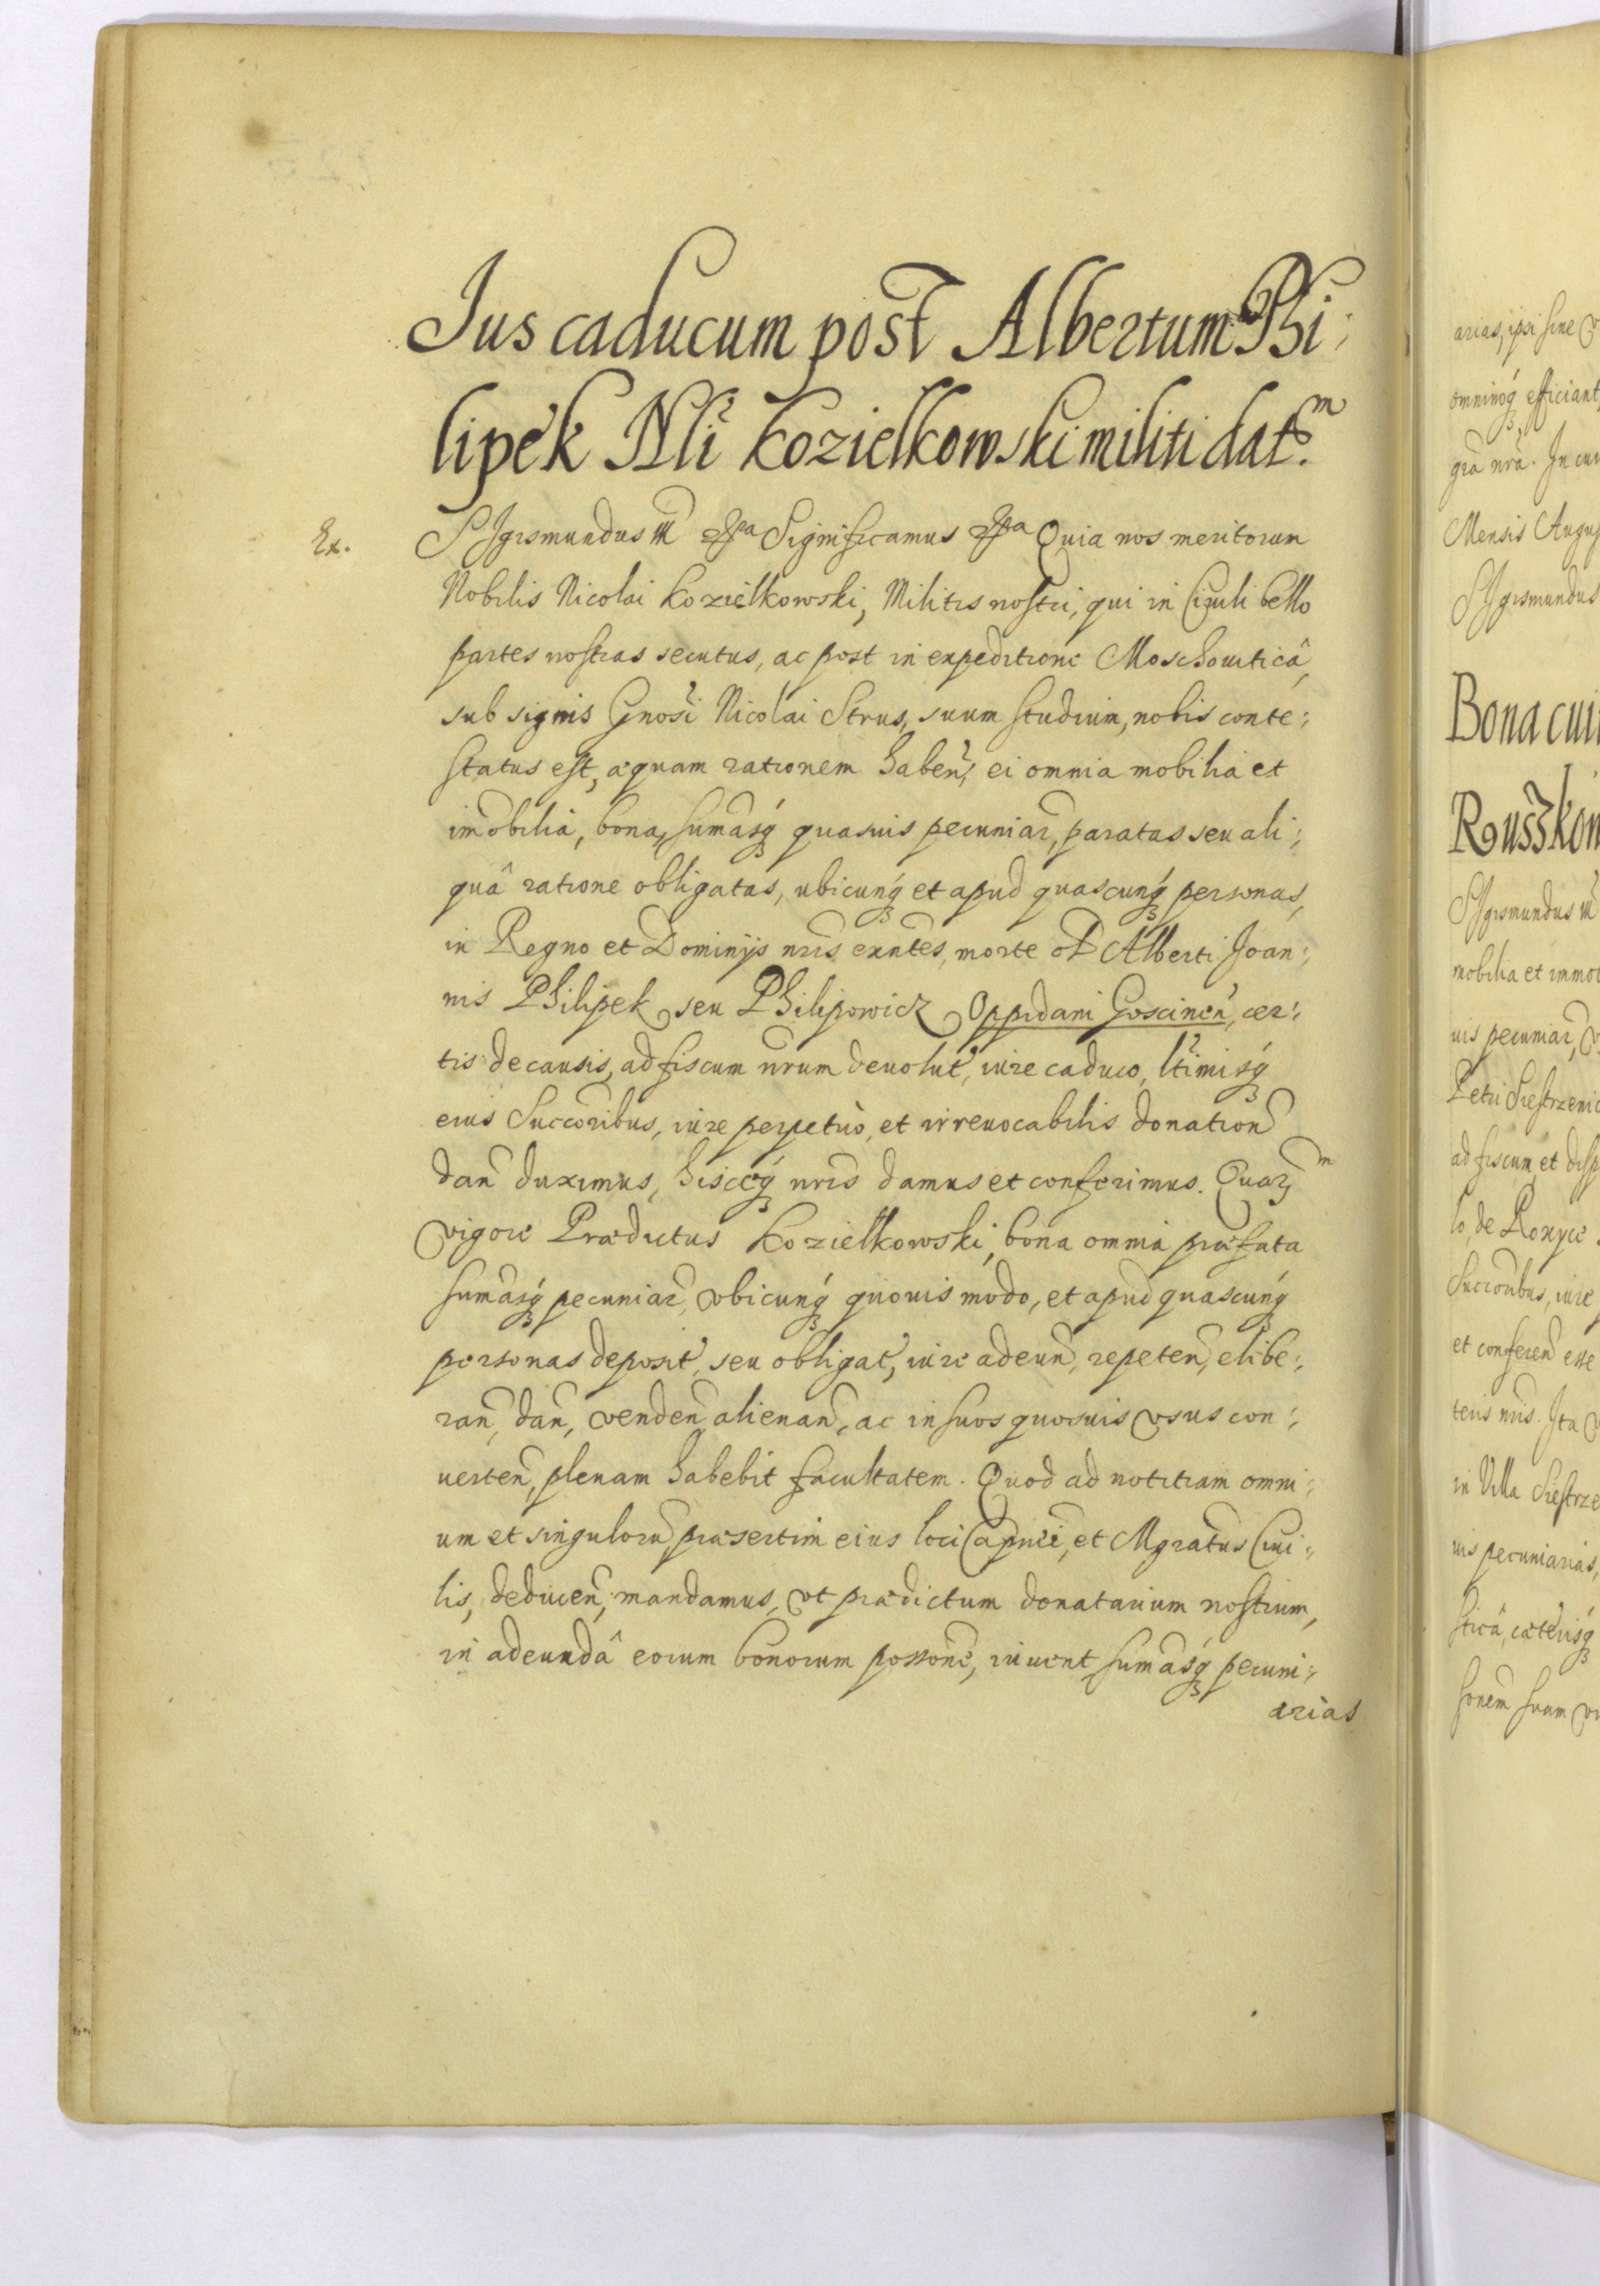 Ius caducum post Albertum Phi:
lipek Nli Kozielkowski militi dat.m
Ex.
SIgismundus III etca Significamus etca Quia nos meritorum
Nobilis Nicolai Kozielkowski, Militis nostri, qui in Ciuili bello
partes nostras secutus, ac post in expeditione Moschouiticâ,
sub signis Gnosi Nicolai Strus, suum studium, nobis conte:
status est, æquam rationem haben, ei omnia mobilia et
imobilia, bona, sumasq quasuis pecuniar, paratas seu ali:
quâ ratione obligatas, ubicunq et apud quascunq personas,
in Regno et Dominijs nris exntes, morte olim Alberti Joan:
nis Philipek seu Philipowicz Oppidani Goscinen, cer:
tis de causis, ad fiscum nrum deuolut, iure caduco, ltimisq
eius Succoribus, iure perpetuò, et irreuocabilis donation
dan duximus, hisceq nris damus et conferimus. Quarm
vigore Prædictus Kozielkowski, bona omnia præfata
sumasq pecuniar, vbicunq quouis modo, et apud quascunq
personas deposit, seu obligat, iure adeun, repeten, elibe:
ran, dan, venden alienan, ac in suos quosuis vsus con:
uerten, plenam habebit facultatem. Quod ad notitiam omni:
um et singulorū, præsertim eius loci Capnei, et Mgratus Ciui:
lis, deducen, mandamus, vt prædictum donatarium nostrum,
in adeundâ eorum bonorum possone, iuuent sumasq pecuni:
arias
arias, ipsi sine
omninoq efficiant,
gra nra. In cui
Mensis Augus
SIgismundus
Bona cui
Ruszkow
SIgismundus III
mobilia et immo
uis pecuniar,
Petri Siestrzenic
ad fiscum et disp
lo, de
Succoribus, iure
et conferen esse
teris nris. Ita
in Villa Siestrze
uis pecuniarias,
sticâ, cæterisq
sonem suam